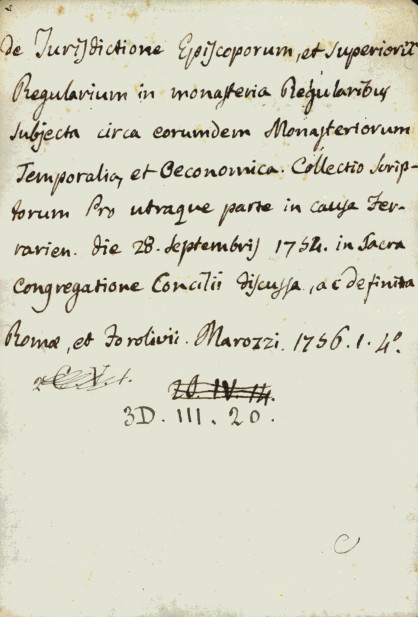 De Jurisdictione Episcoporum, et superiorũ
Regularium in monasteria Regularibus
subjecta circa eorumdem Monasteriorum
Temporalia, et Oeconomica. Collectio scrip-
torum pro utraque parte in causa Fer-
rarien. die 28. septembris 1754. in Sacra
Congregatione Concilii discussa, ac definita
Romæ, et Forolivii. Marozzi. 1756. 1. 4º.
20. IV. 14.
3D. III. 20.